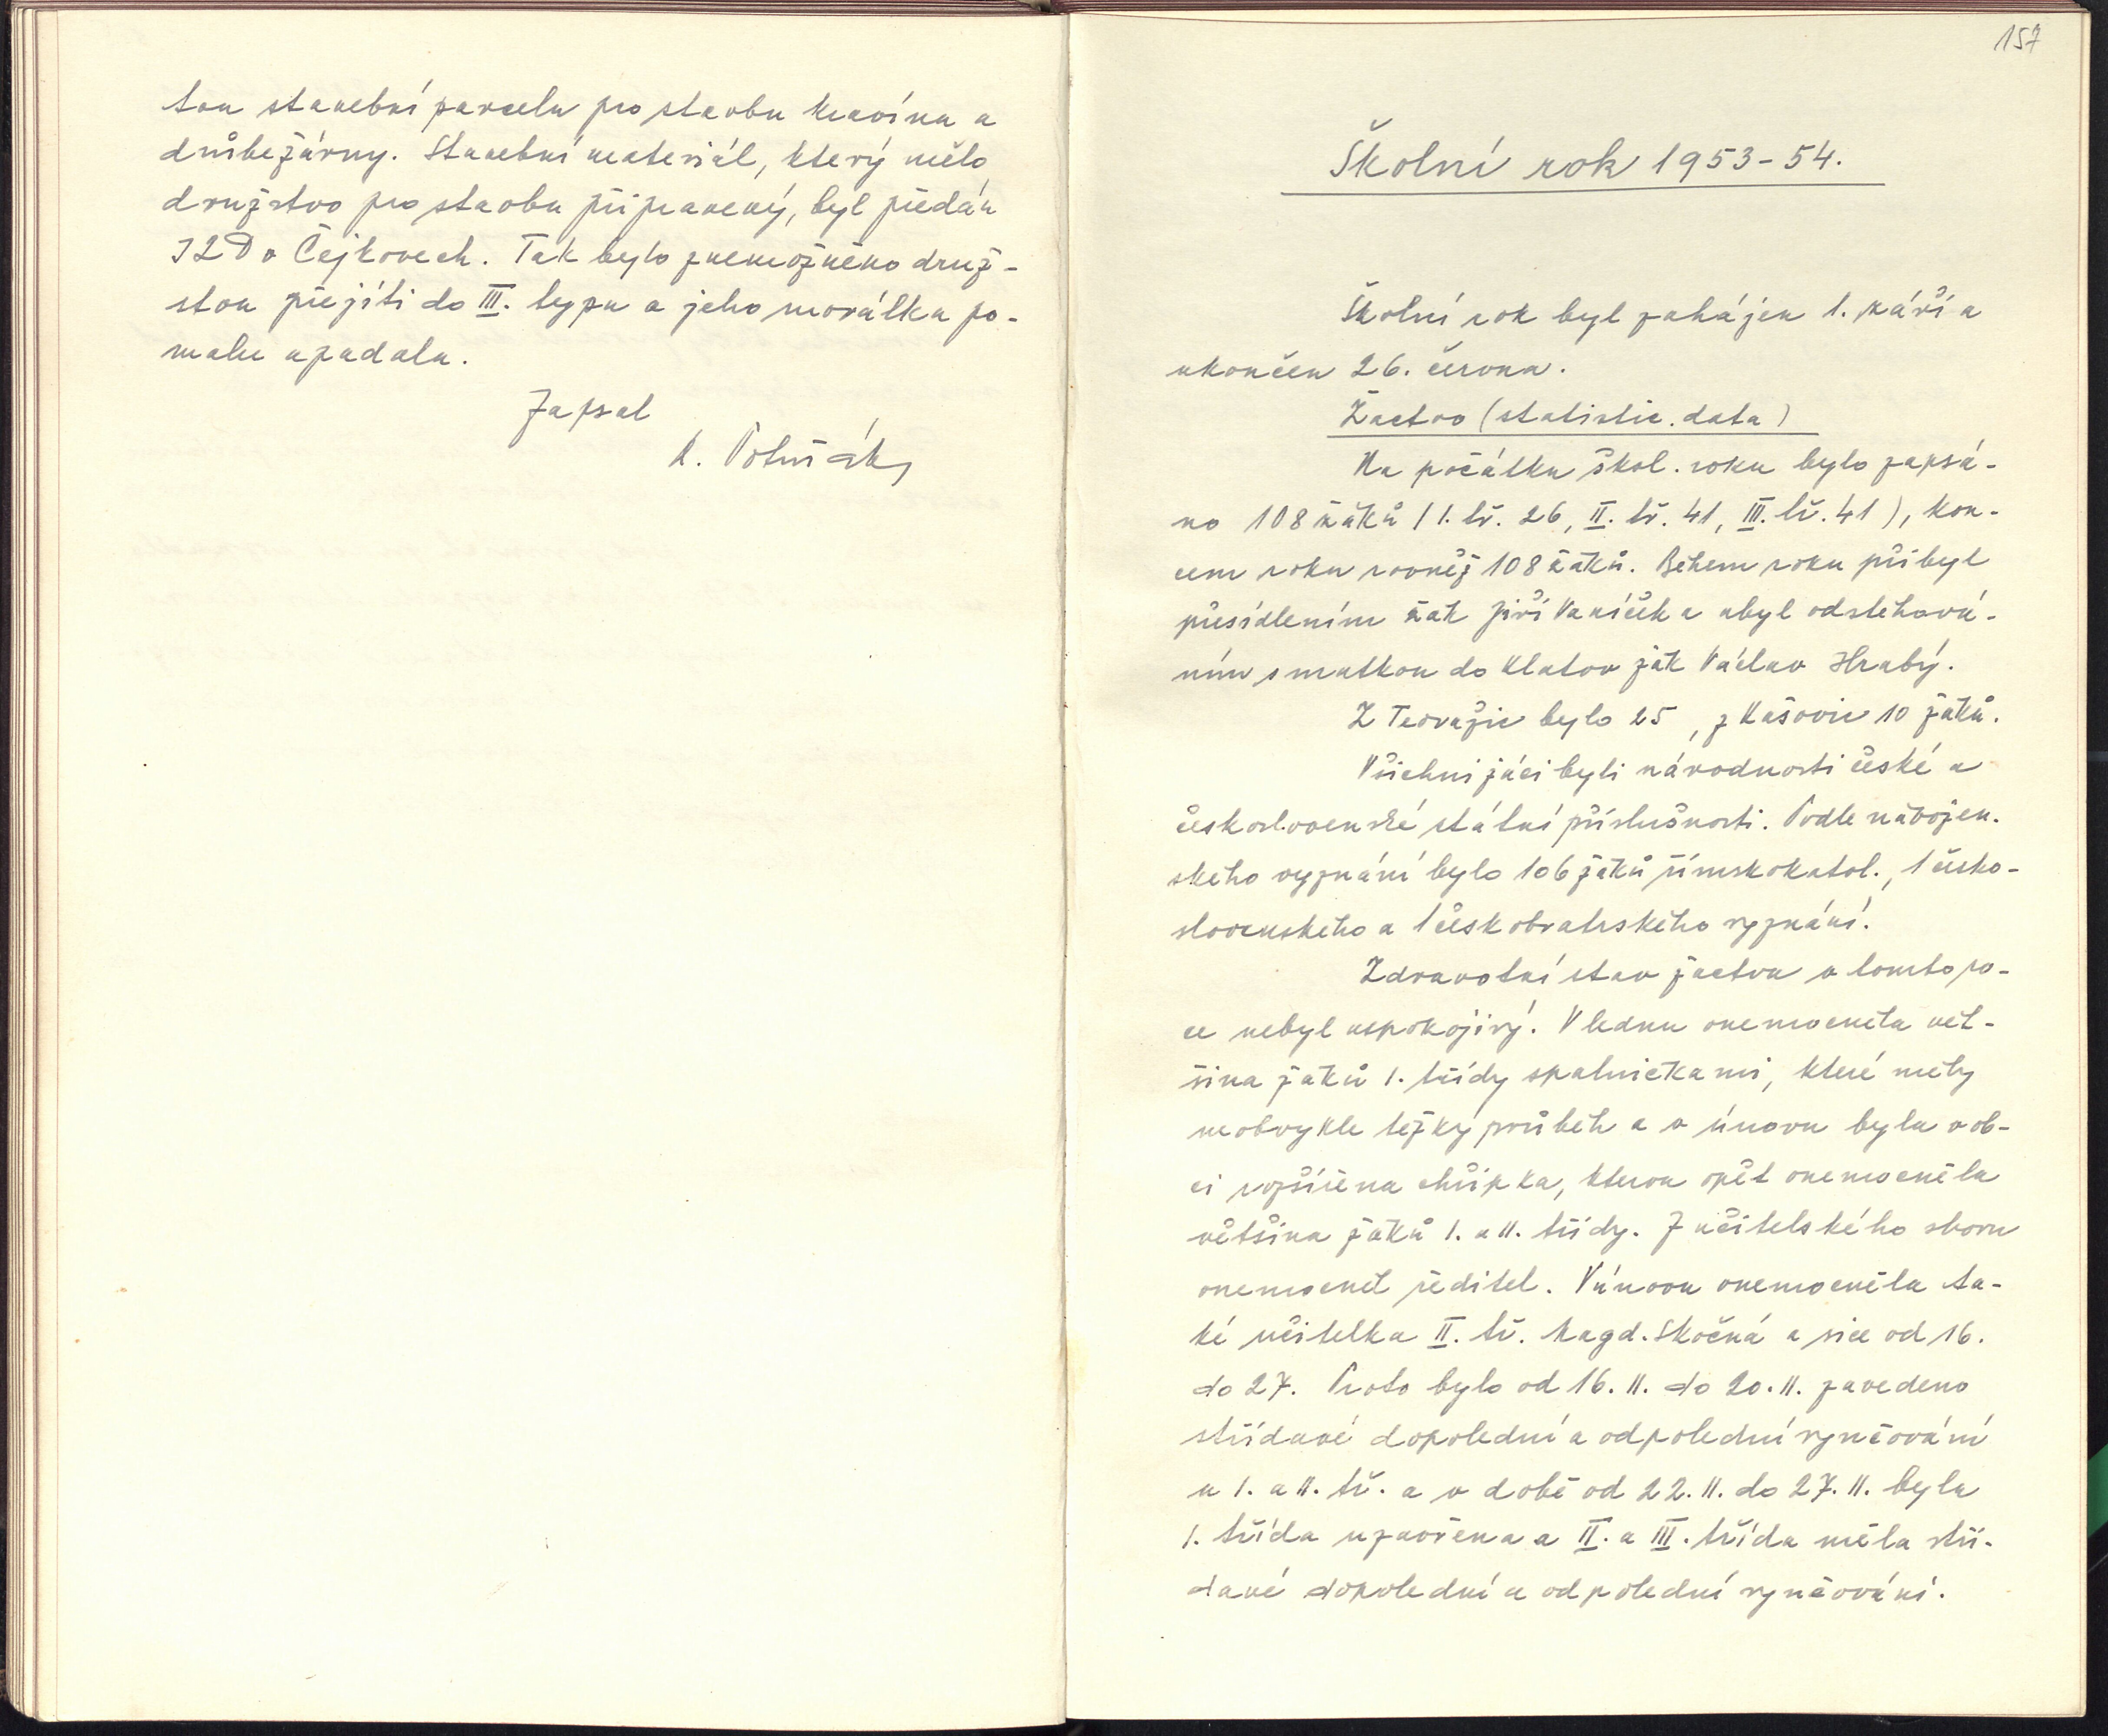 tvu stavební parcelu pro stavbu kravína a
drůbežárny. Stavební materiál, který mělo
družstvo pro stavbu připravený, byl předán
JZD v Čejkovech. Tak bylo znemožněno druž-
stvu přejíti do III. typu a jeho morálka po-
malu upadala.
Zapsal
157
Školní rok 1953-54.
Školní rok byl zahájen 1. září a
ukončen 26. června.
Žactvo (statistic. data)
Na počátku škol. roku bylo zapsá-
no 108 žáků (I. tř. 26, II. tř. 41, III. tř. 41), kon-
cem roku rovněž 108 žáků. Během roku přibyl
přesídlením žák Jiří Vaníček a ubyl odstěhová-
ním s matkou do Klatov žák Václav Hrabý.
Z Tedražic bylo 25, z Kašovic 10 žáků.
Všichni žáci byli národnosti české a
československé státní příslušnosti. Podle nábožen-
ského vyznání bylo 106 žáků římskokatol., 1 česko-
slovenského a 1 českobratrského vyznání.
Zdravotní stav žactva v tomto ro-
ce nebyl uspokojivý. V lednu onemocněla vět-
šina žáků I. třídy spalničkami, které měly
neobvykle těžký průběh a v únoru byla v ob-
ci rozšířena chřipka, kterou opět onemocněla
většina žáků I. a II. třídy. Z učitelského sboru
onemocněl ředitel. V únoru onemocněla ta-
ké učitelka II. tř. Magd. Skočná a sice od 16.
do 27. Proto bylo od 16. II. do 20. II. zavedeno
střídavé dopolední a odpolední vyučování
u I. a II. tř. a v době od 22. II. do 27. II. byla
I. třída uzavřena a II. a III. třída měla stří-
davé dopolední a odpolední vyučování.